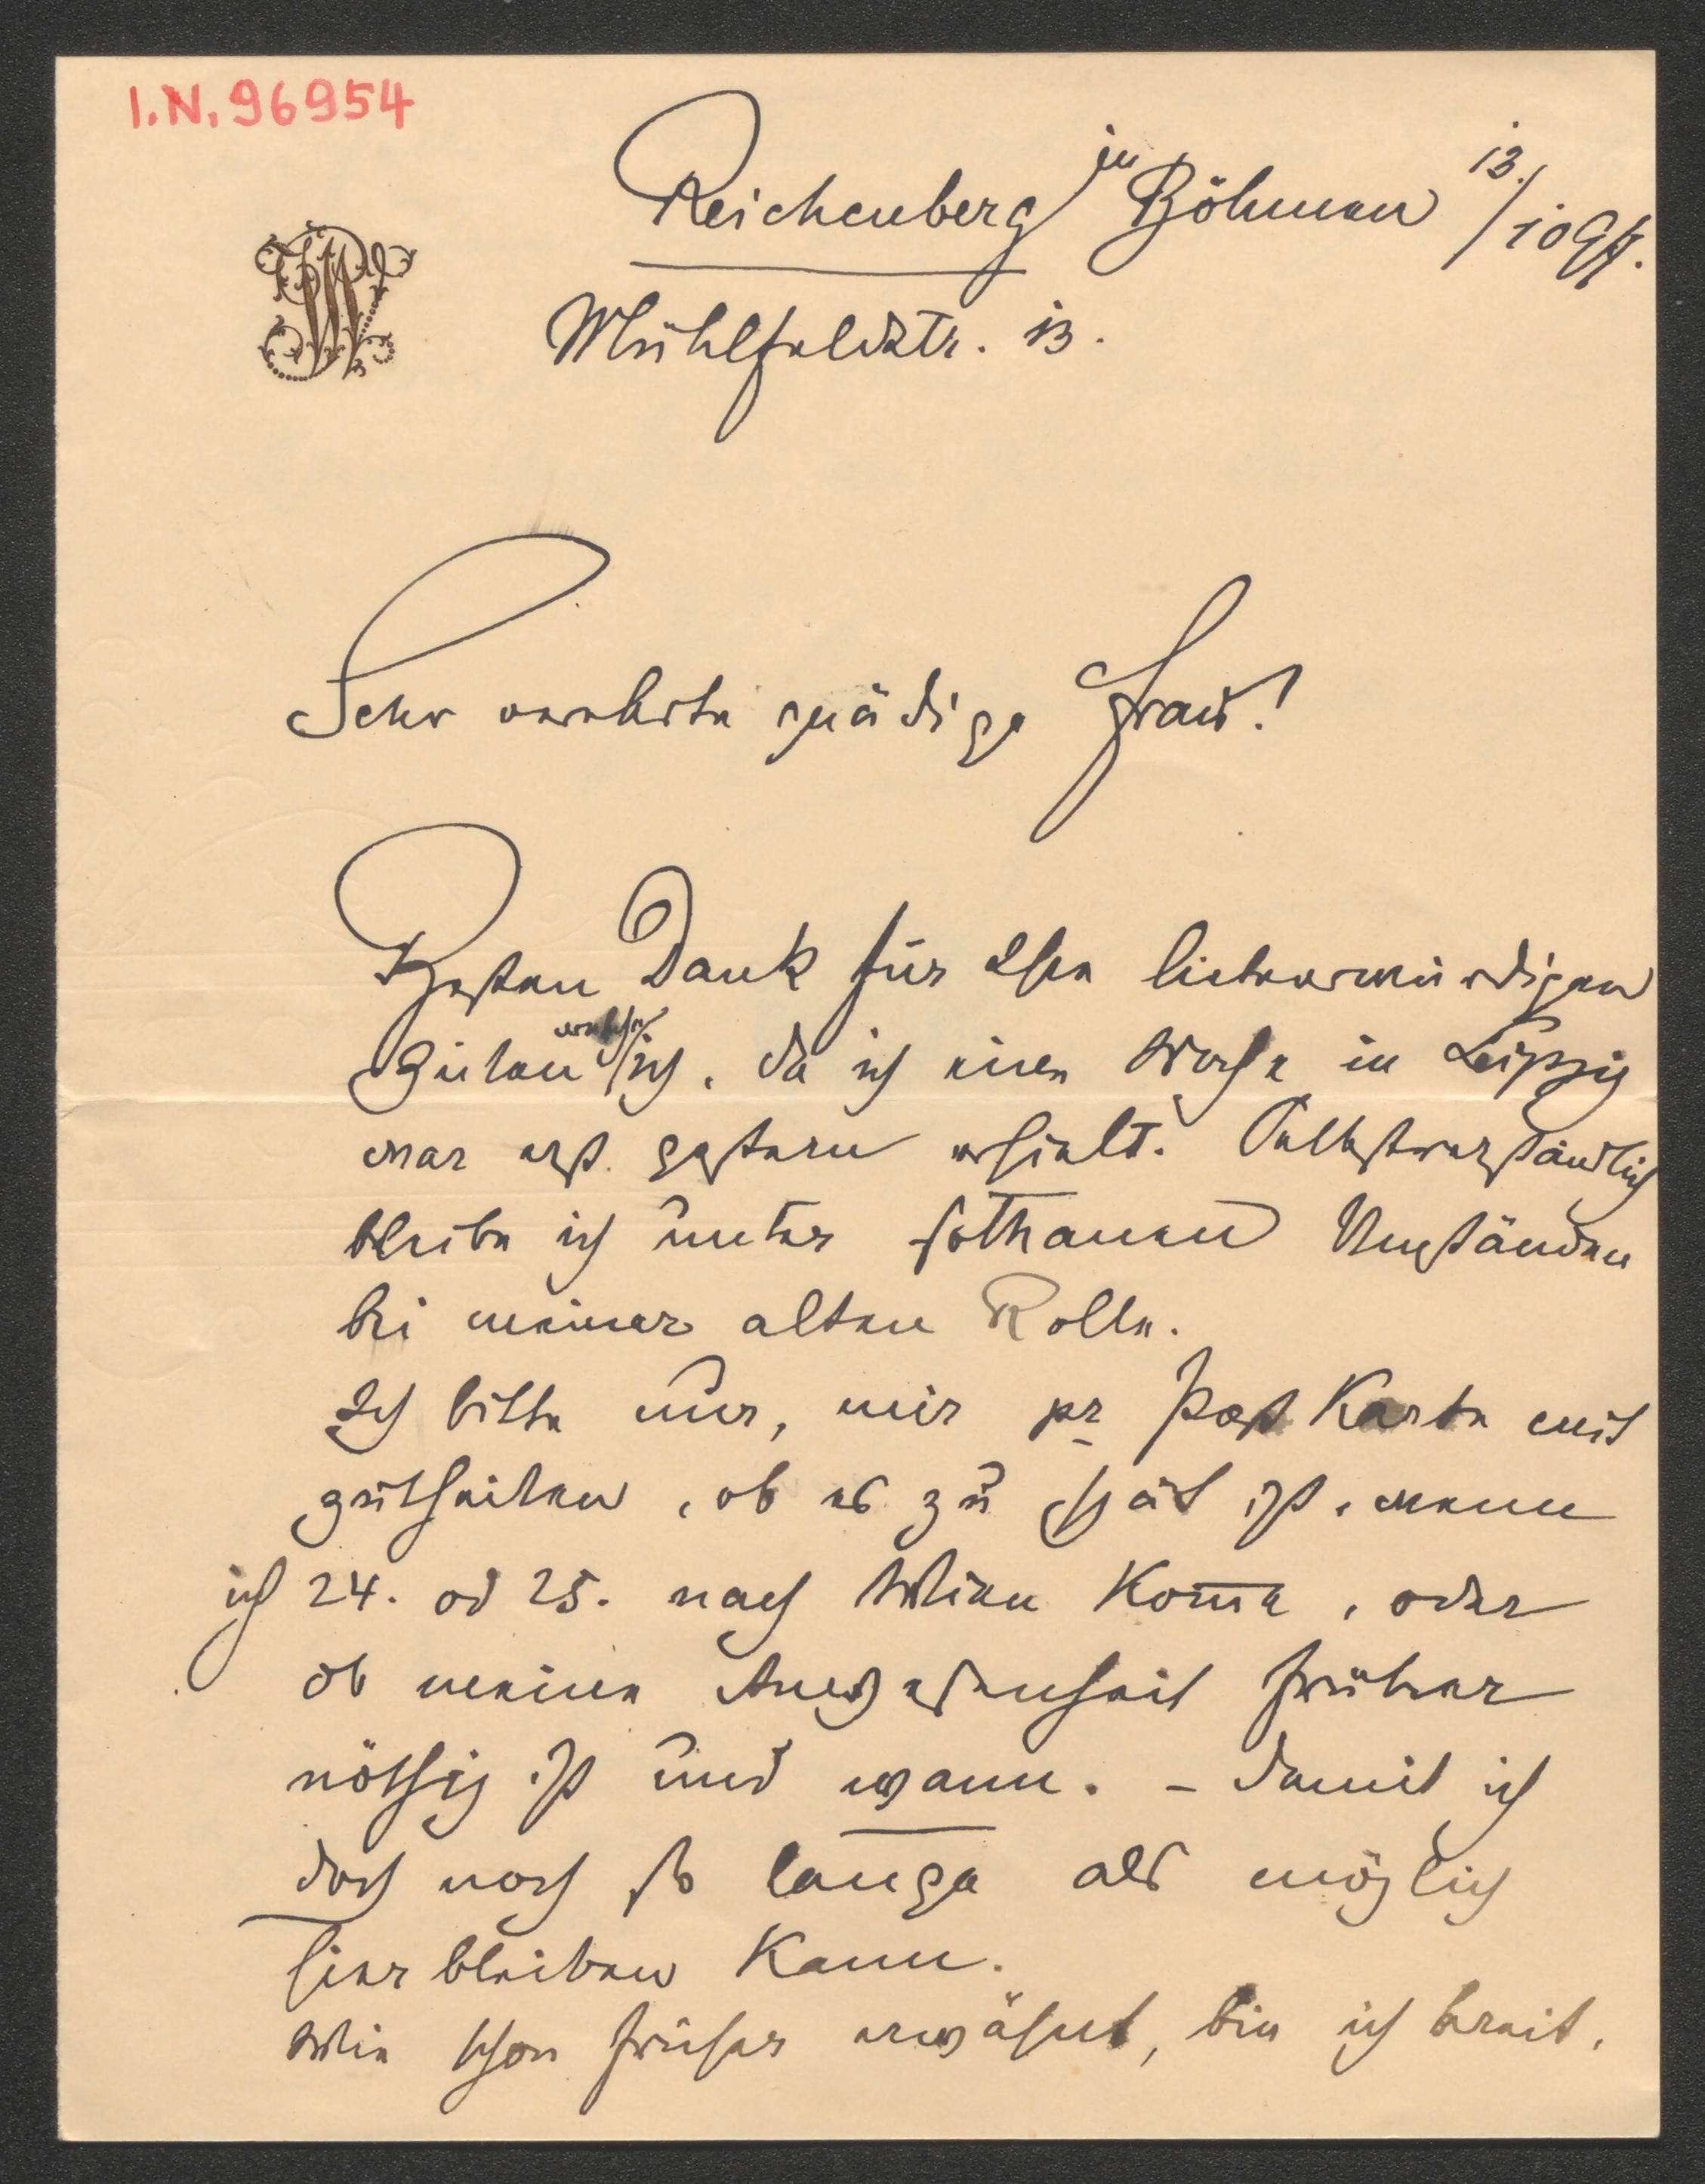 I.N. 96954
Reichenberg in Böhmen 13./10 97.
Mühlfeldstr. 13.
Sehr verehrte gnädige Frau!
Besten Dank für Ihre liebenswürdigen
Zeilen welche ich, da ich eine Woche in Leipzig
war erst gestern erhielt. Selbstverständlich
bleibe ich unter sothanen Umständen
bei meiner alten Rolle.
Ich bitte nur, mir pr Post Karte mit
gutheilen, ob es zu spät ist, wenn
ich 24. od 25. nach Wien kom̅e, oder
ob meine Anwesenheit früher
nöthig ist und wann. – damit ich
doch noch so lange als möglich
hier bleiben kann.
Wie schon früher erwähnt, bin ich bereit,